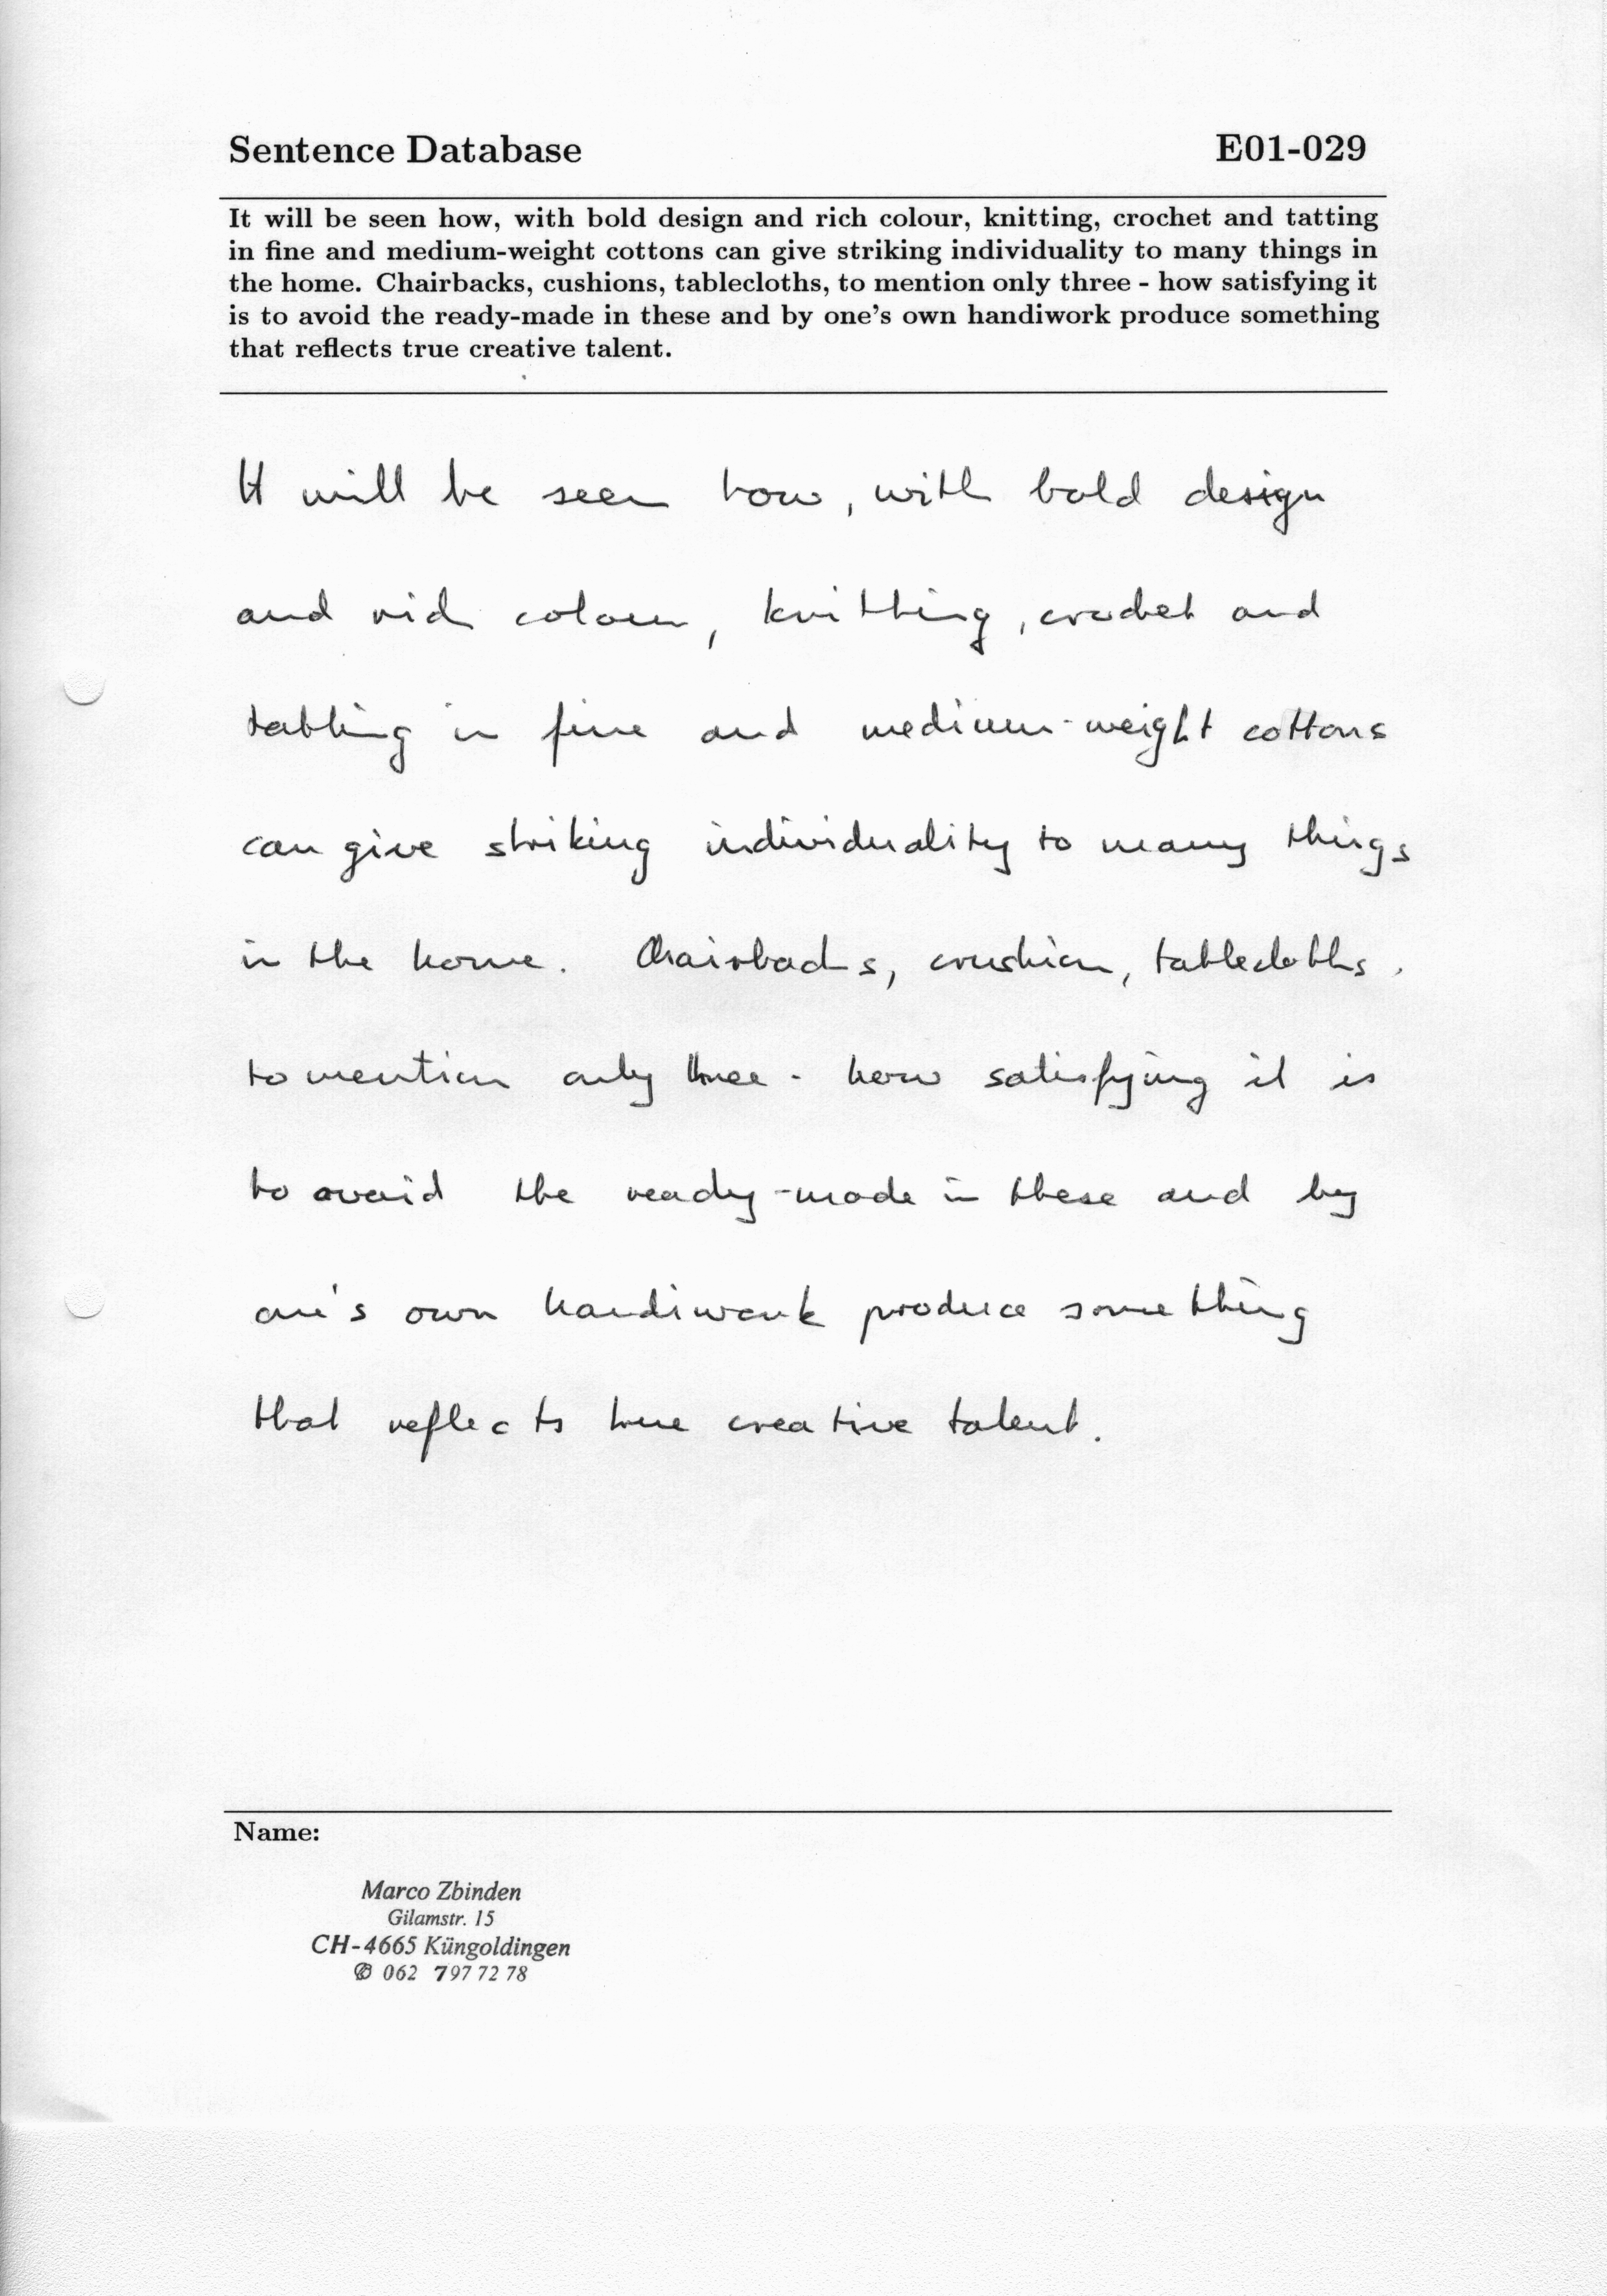 Sentence Database E01-029
It will be seen how, with bold design and rich colour, knitting, crochet and tatting
in fine and medium-weight cottons can give striking individuality to many things in
the home. Chairbacks, cushions, tablecloths, to mention only three - how satisfying it
is to avoid the ready-made in these and by one's own handiwork produce something
that reflects true creative talent.
It will be seen how, with bold design
and rich colour, knitting, crochet and
tatting in fine and medium-weight cottons
can give striking individuality to many things
in the home. Chairbacks, crushion, tablecloths,
to mention only three - how satisfying it is
to avoid the ready-made in these and by
one's own handiwork produce something
that reflects true creative talent.
Name:
Marco Zbinden
Gilamstr. 15
CH-4665 Küngoldingen
✆ 062 797 72 78